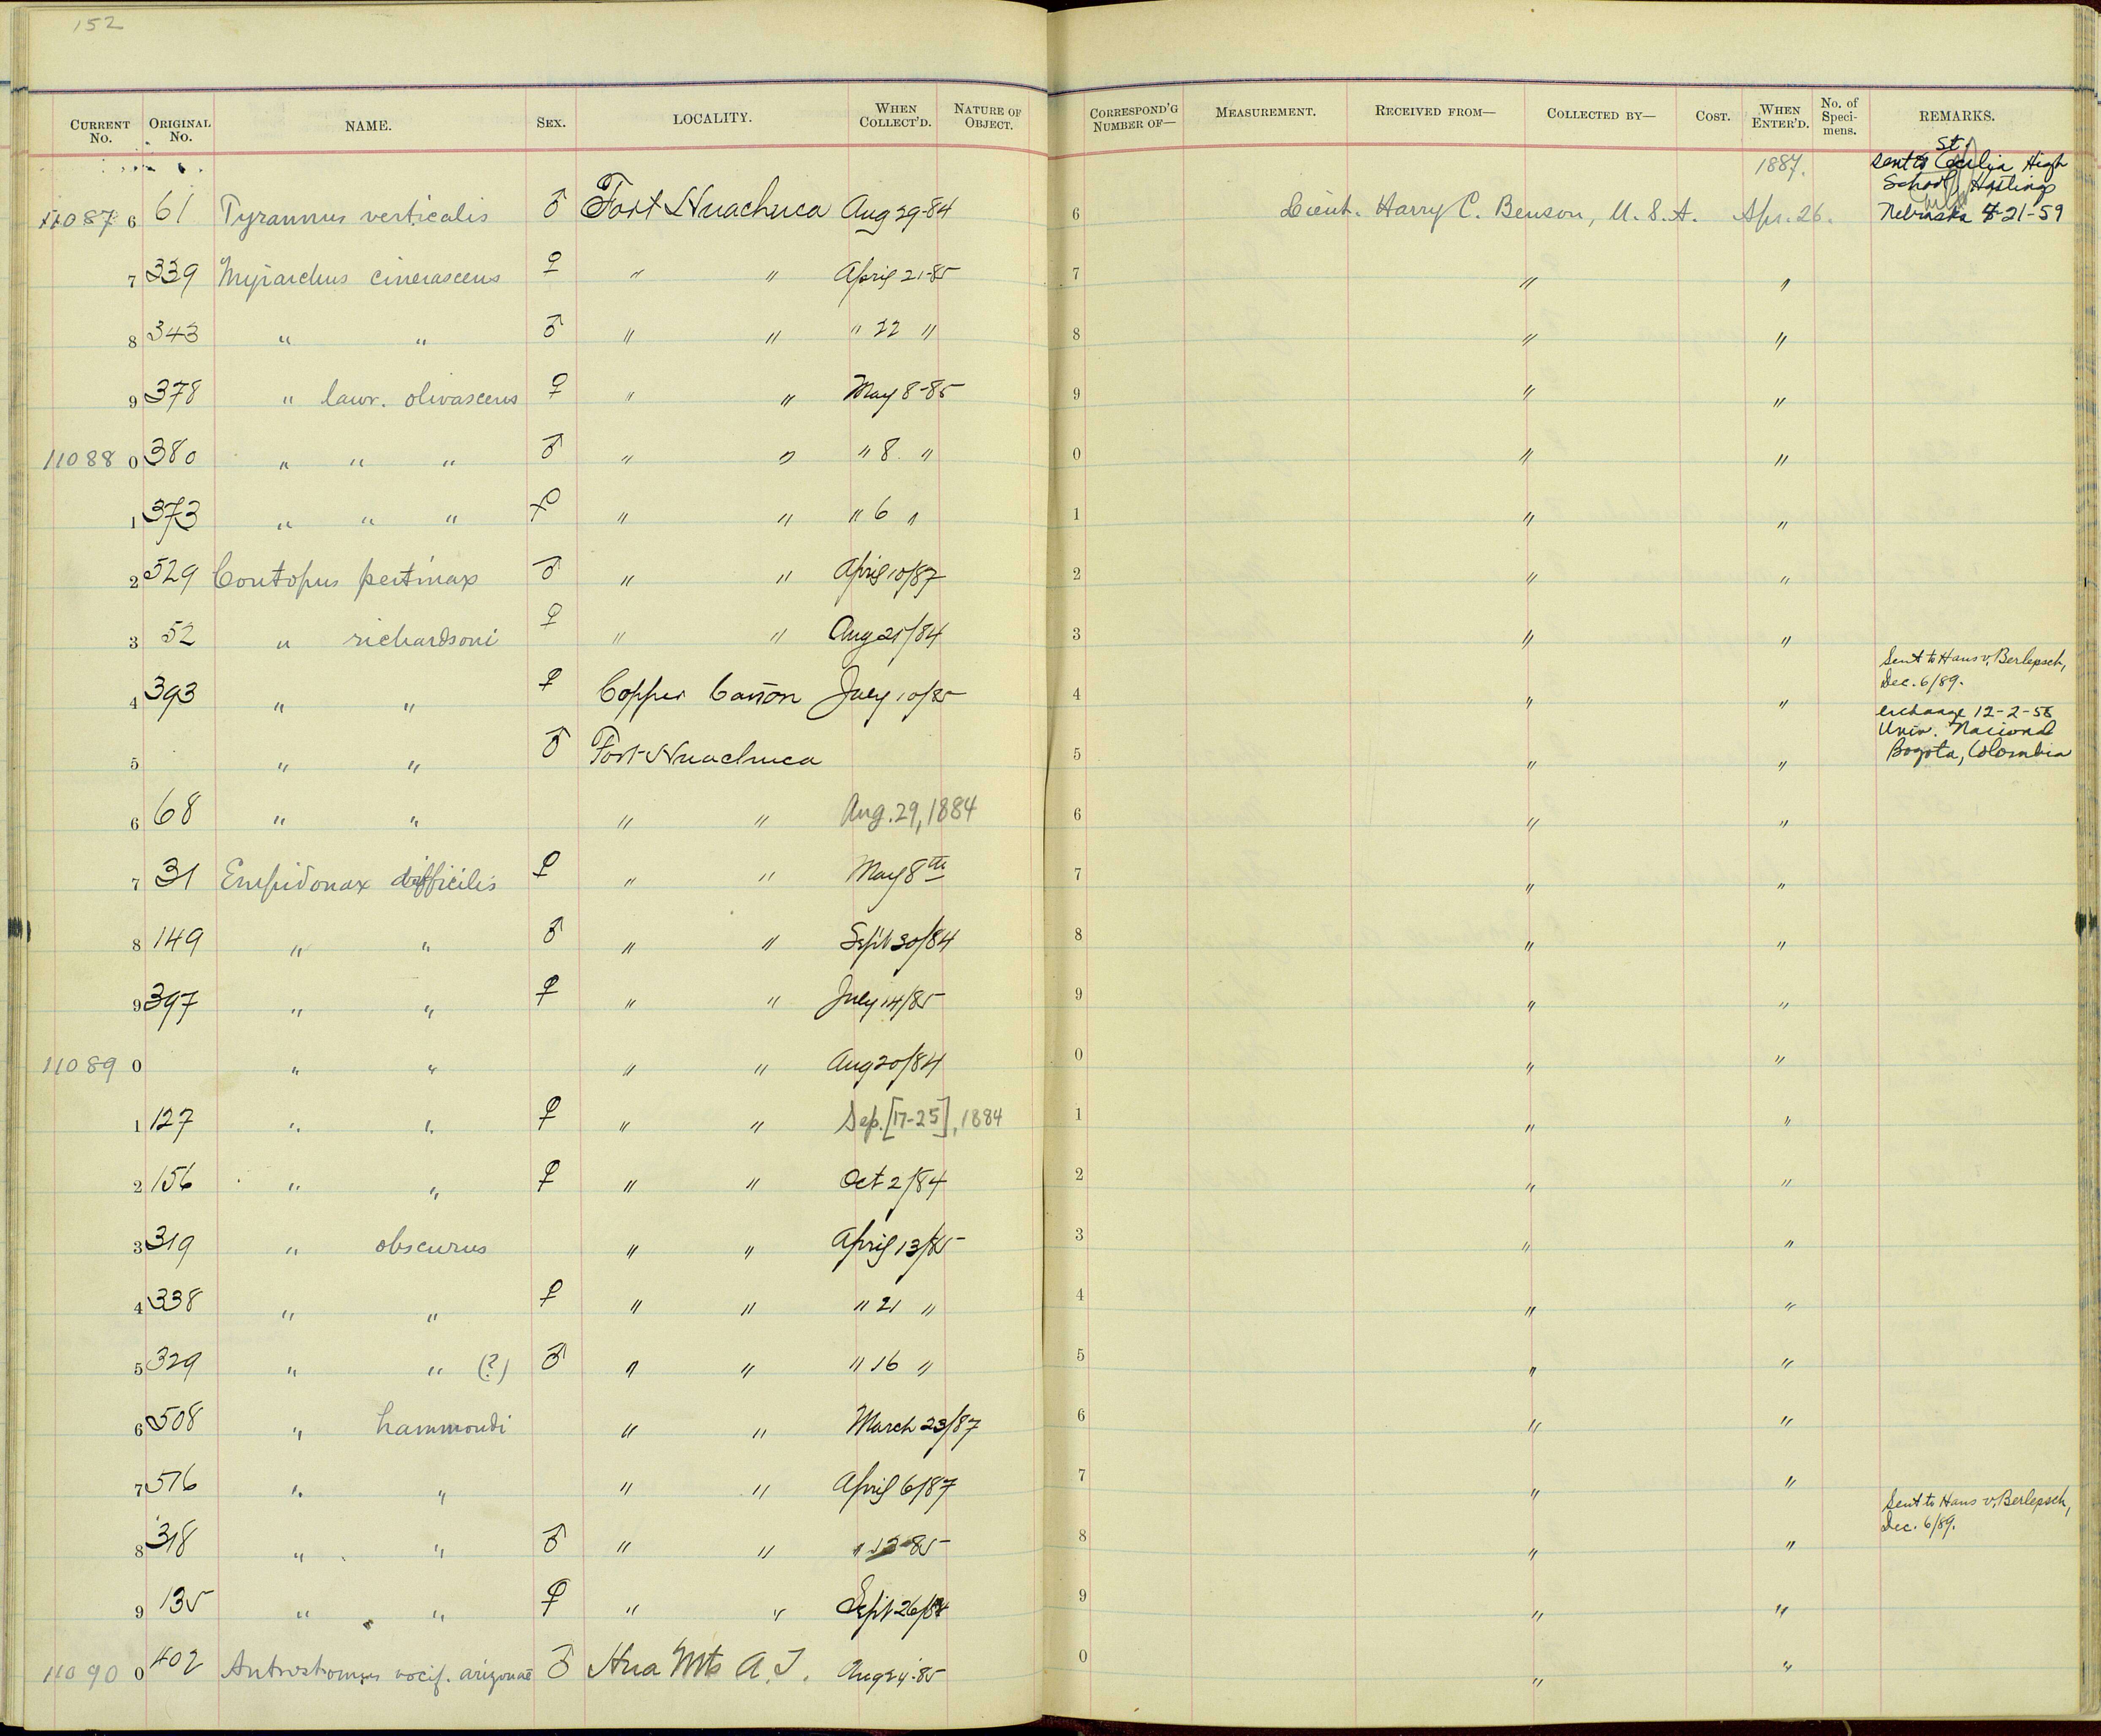 152
CURRENT No. ORIGINAL No. NAME. SEX. LOCALITY. WHEN COLLECT'D. NATURE OF OBJECT. CORRESPOND'G NUMBER OF— MEASUREMENT. RECEIVED FROM— COLLECTED BY— COST. WHEN ENTER'D. No. of Specimens. REMARKS.
1887. Sent to St. Cecilia High School, Hastings
11087 6 61 Tyrannus verticalis ♂ Fort Huachuca Aug 29-84 6 Lieut. Harry C. Benson, U.S.A. Apr. 26. Nebraska 4-21-59
7 339 Myiarchus cinerascens ♀ " " April 21-85 7 " "
8 343 " " ♂ " " " 22 " 8 " "
9 378 " lawr. olivascens ♀ " " May 8-85 9 " "
11088 0 380 " " " ♂ " " " 8 " 0 " "
1 373 " " " ♀ " " " 6 " 1 " "
2 529 Contopus pertinax ♂ " " April 10/87 2 " "
3 52 " richardsoni ♀ " " Aug 25/84 3 " "
4 393 " " ♀ Copper Cañon July 10/85 4 " " Sent to Hans v. Berlepsch, Dec. 6/89.
5 " " ♂ Fort Huachuca 5 " " exchange 12-2-58 Univ. Nacional Bogota, Colombia
6 68 " " " " Aug. 29, 1884 6 " "
7 31 Empidonax difficilis ♀ " " May 8th 7 " "
8 149 " " ♂ " " Sept 30/84 8 " "
9 397 " " ♀ " " July 14/85 9 " "
11089 0 " " " " Aug 20/84 0 " "
1 127 " " ♀ " " Sep. [17-25], 1884 1 " "
2 156 " " ♀ " " Oct 2/84 2 " "
3 319 " obscurus " " April 13/85 3 " "
4 338 " " ♀ " " " 21 " 4 " "
5 329 " " (?) ♂ " " " 16 " 5 " "
6 508 " hammondi " " March 23/87 6 " "
7 516 " " " " April 6/87 7 " "
8 318 " " ♂ " " " 13-85 8 " " Sent to Hans v. Berlepsch, Dec. 6/89.
9 135 " " ♀ " " Sept 26/84 9 " "
11090 0 402 Antrostomus vocif. arizonae ♂ Hua Mts A.T. Aug 24-85 0 " "